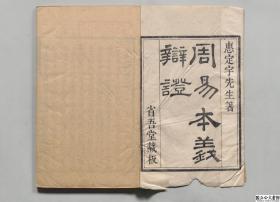 惠定宇先生著
周易本義
辯證
省吾堂藏板